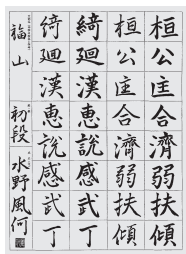 桓公匡合濟弱扶傾
桓公匡合濟弱扶傾
綺廻漢恵説感武丁
綺廻漢恵説感武丁
福山 初段 水野風何